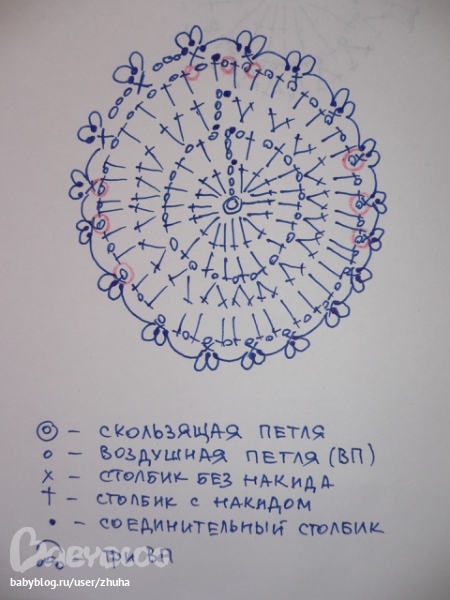 - СКОЛЬЗЯЩАЯ ПЕТЛЯ
- ВОЗДУШНАЯ ПЕТЛЯ (ВП)
х - СТОЛБИК БЕЗ НАКИДА
† - СТОЛБИК С НАКИДОМ
• - СОЕДИНИТЕЛЬНЫЙ СТОЛБИК
- ТРИ ВП
BABYBLOG
babyblog.ru/user/zhuha